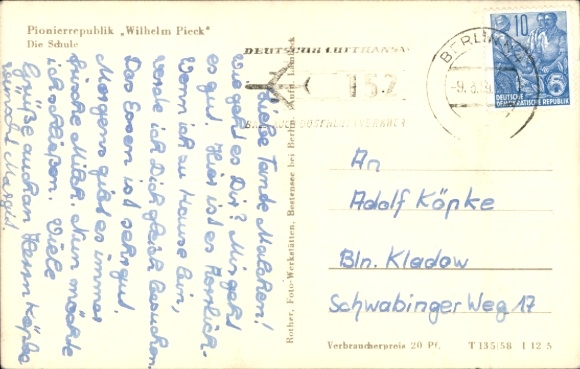 Pionierrepublik „Wilhelm Pieck"
Die Schule
Liebe Tante Malchen!
Wie geht es Dir? Mir geht
es gut. Hier ist es herrlich.
Wenn ich zu Hause bin,
werde ich Dich gleich besuchen.
Das Essen ist sehr gut.
Morgens gibt es immer
frische Milch. Nun möchte
ich schließen. Viele
Grüße auch an Herrn Köpke
wünscht Margit.
Rother, Foto-Werkstätten, Bestensee bei Berlin
DEUTSCHE LUFTHANSA
152
BERLIN
-9.8.
10
DEUTSCHE
DEMOKRATISCHE REPUBLIK
5
An
Adolf Köpke
Bln. Kladow
Schwabinger Weg 17
Verbraucherpreis 20 Pf. T 135/58 I 12 5